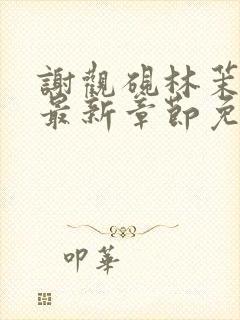 謝觀硯林茉
最新章節免
叩華